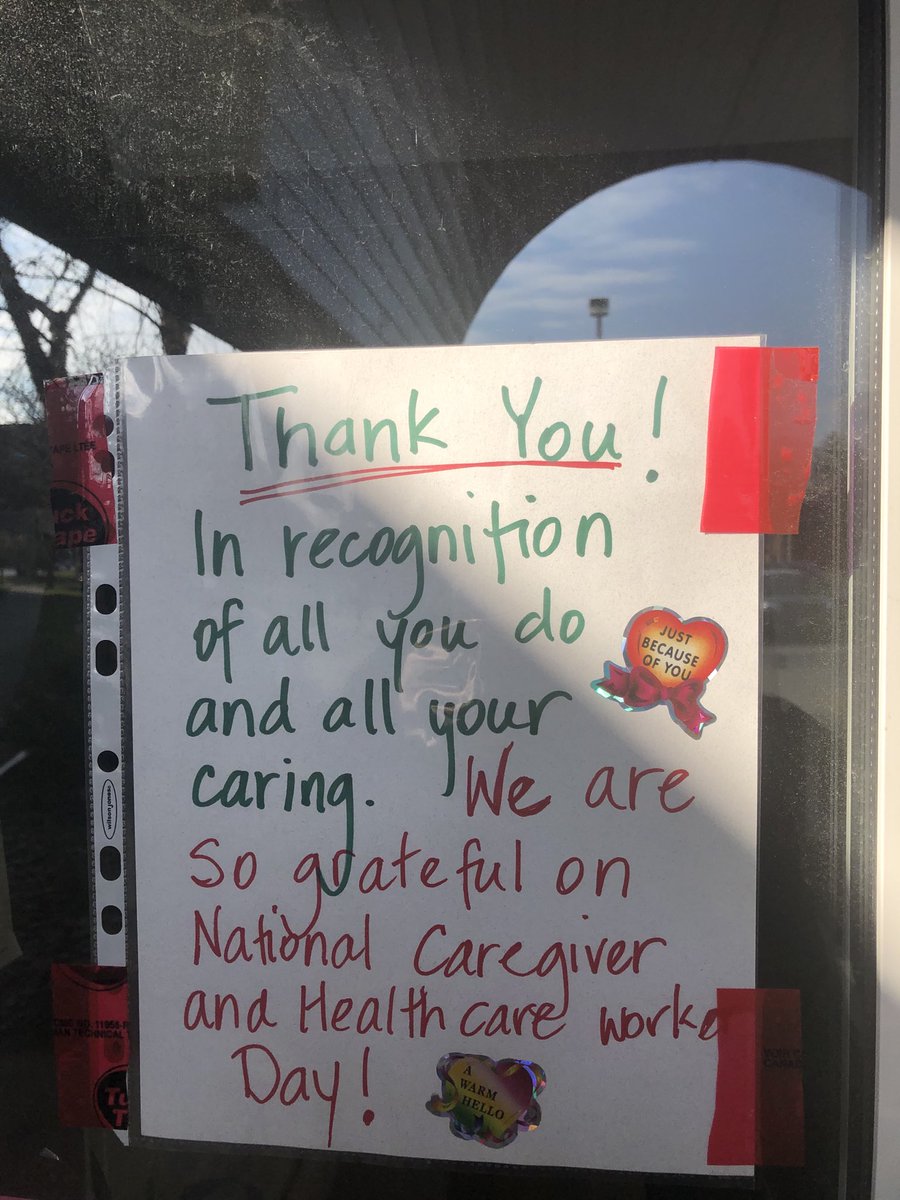 Thank You!
In recognition
of all you do
and all your
caring. We are
So grateful on
National Caregiver
and Healthcare worke
Day!
JUST
BECAUSE
OF YOU
A
WARM
HELLO
wilson jones